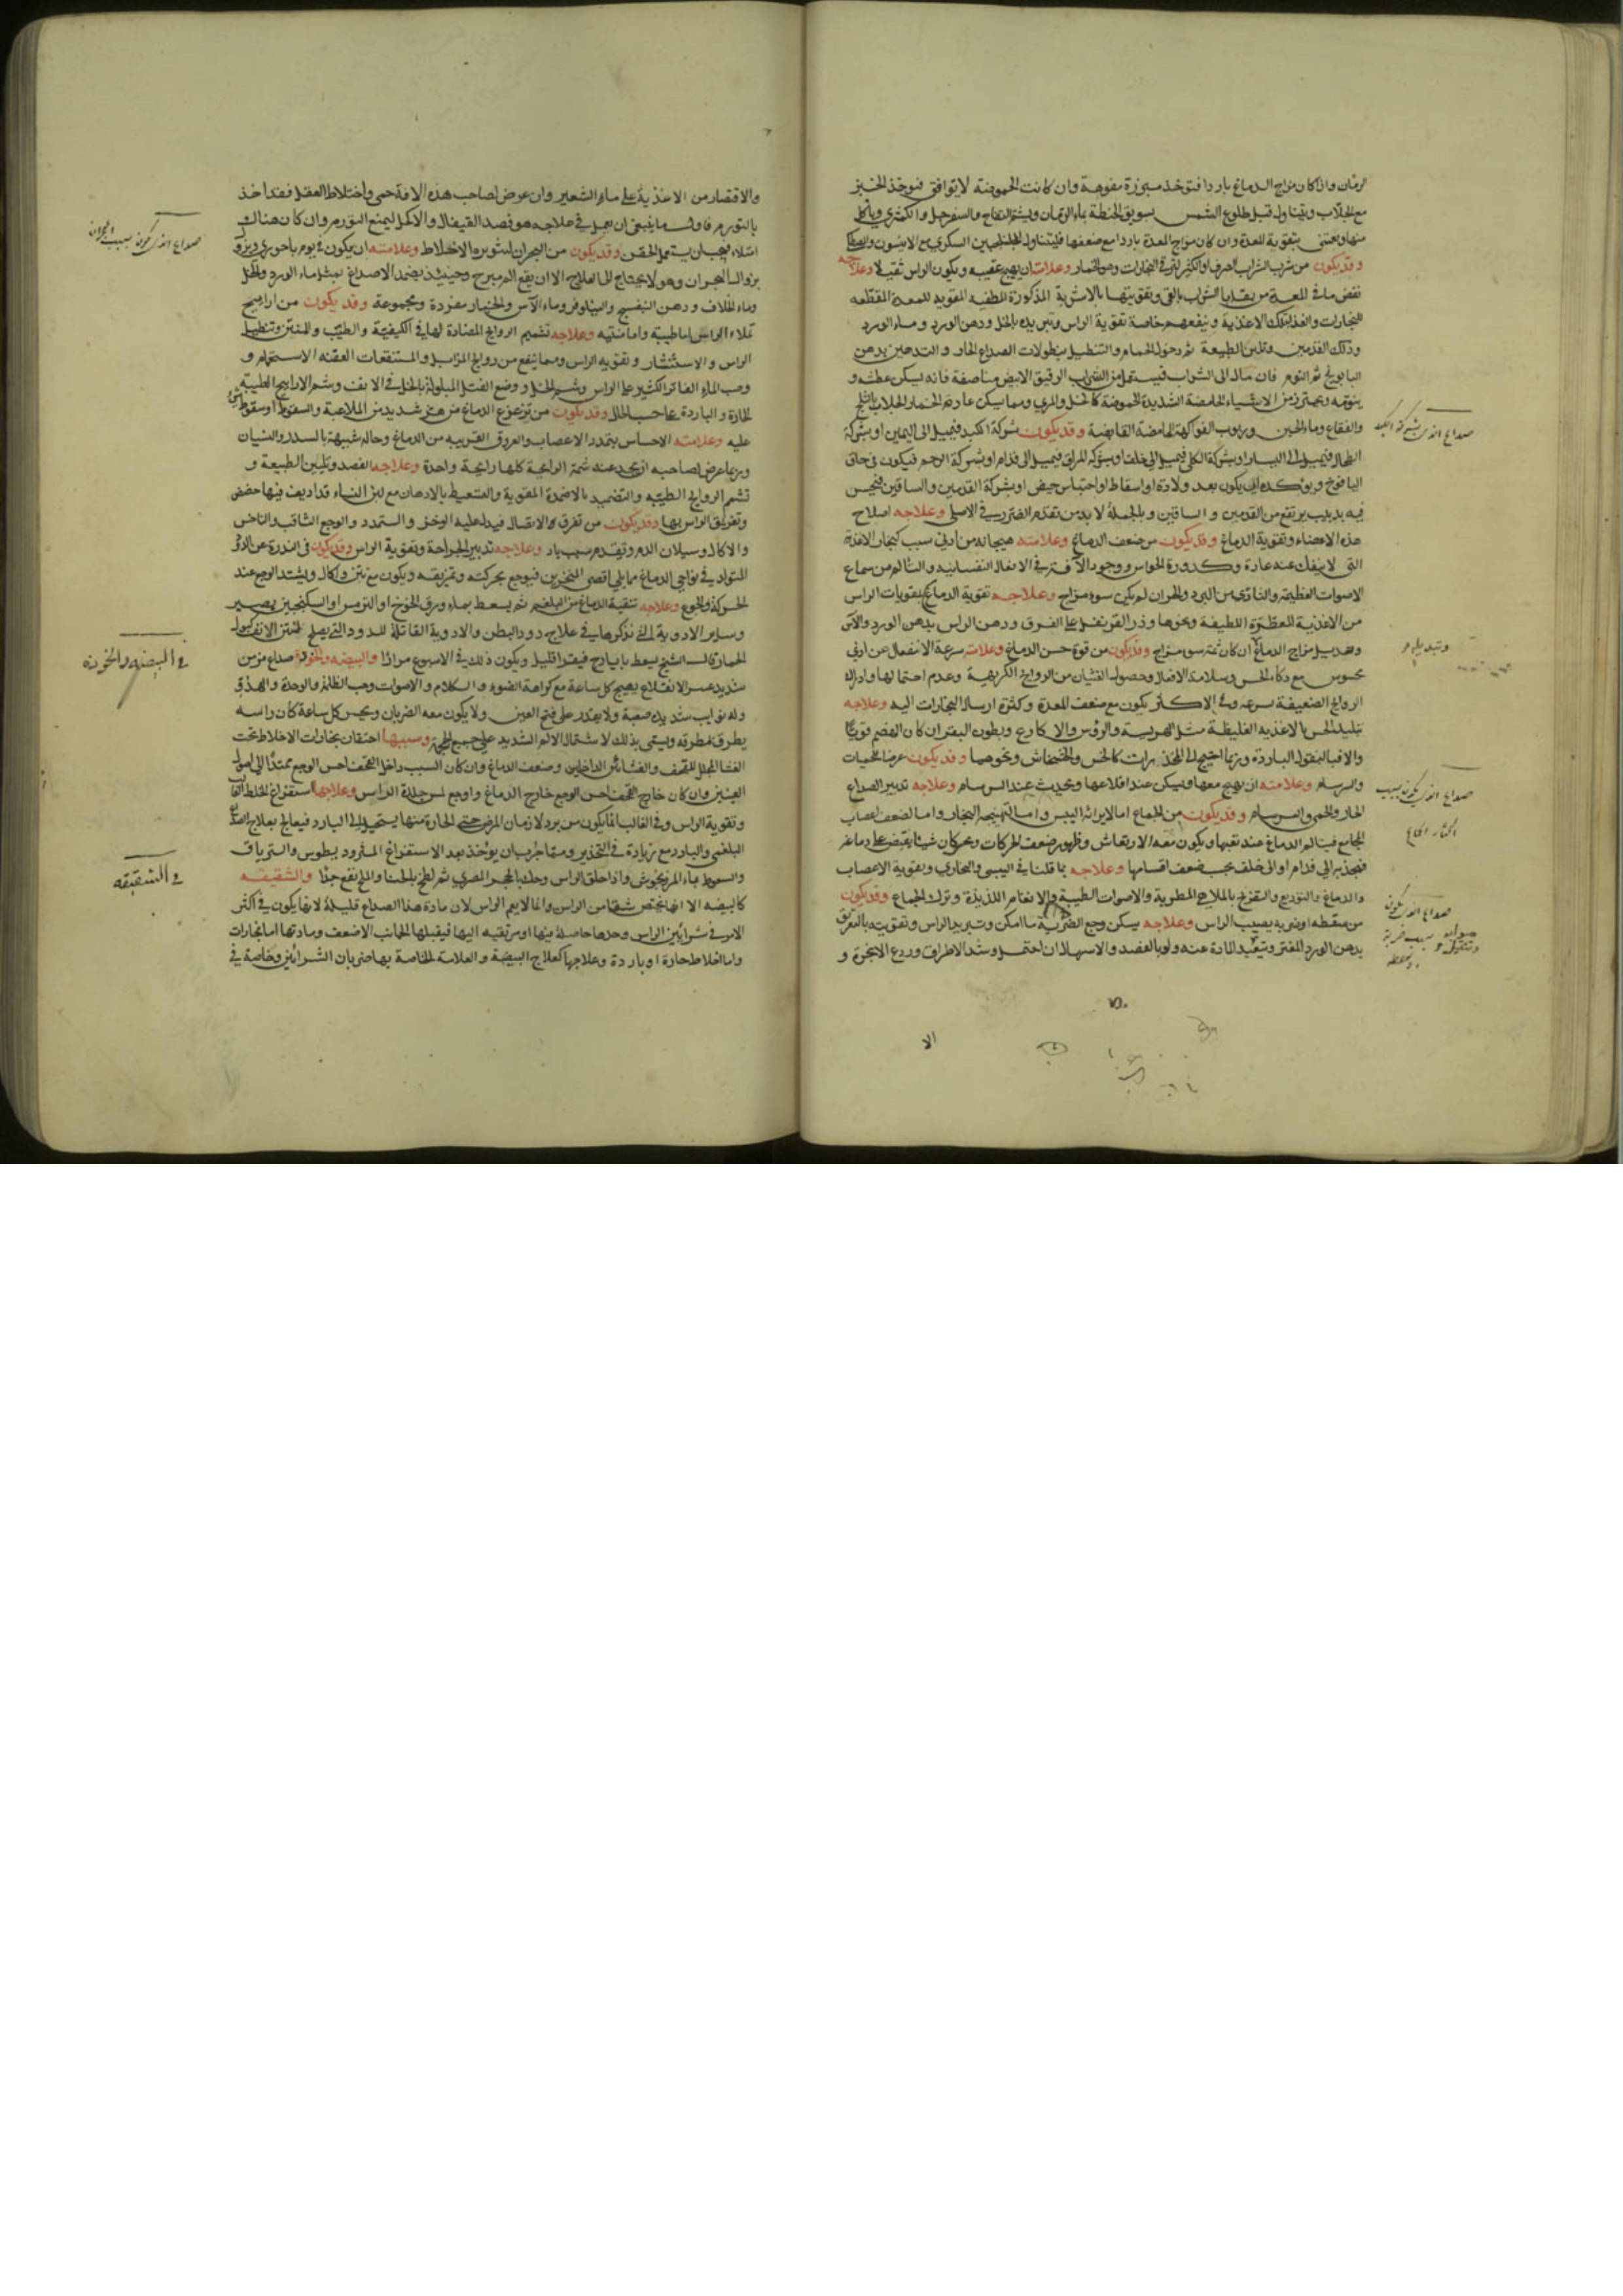 الرمان واذا كان مزاج الدماغ باردا فتوخذ مبزرة مفوهة وان كانت الحموضة لا توافق فيوخذ الخبز
مع الجلاب ويتناول قبل طلوع الشمس بسويق الحنطة بماء الرمان ويشم التفاح والسفرجل والكمثرى وياكل
منها ويعتنى بتقوية المعدة وان كان مزاج المعدة باردا مع ضعفها فليتناول الجلنجبين السكري مع الانيسون والمصطكى
وقد يكون من شرب الشراب الصرف او الكثير لترقي البخارات وهو الخمار وعلامته ان يهيج عقيبه ويكون الراس ثقيلا وعلاجه
نفض ما في المعدة من بقايا الشراب بالقي وتقويتها بالاشربة المذكورة المطفيه المقويه للمعدة المقطعه
للبخارات والغذا بتلك الاغذية وينفعهم خاصة تقوية الراس وتبريده بالخل ودهن الورد وماء الورد
ودلك القدمين وتليين الطبيعة ثم دخول الحمام والتنطيل بنطولات الصداع الحار والتدهين بدهن
البابونج ثم النوم فان مال الى الشراب فيستعمل من الشراب الرقيق الابيض مناصفة فانه يسكن عطشه و
ينومه ويحترز من الاشياء الحامضة الشديدة الحموضة كالخل والمري ومما يسكن عادية الخمار الجلاب بالثلج
والفقاع وماء الجبن وربوب الفواكه الحامضة القابضة وقد يكون بشركة الكبد فيميل الى اليمين او بشركة
الطحال فيميل الى اليسار او بشركة الكلى فيميل الى خلف او بشركة المراق فيميل الى قدام او بشركة الرحم فيكون في حاق
اليافوخ ويوكده ان يكون بعد ولادة او اسقاط او احتباس حيض او بشركة القدمين والساقين فيحس
فيه بدبيب يرتفع من القدمين والساقين وبالجملة لا بد من تقدم الضرر في الاصل وعلاجه اصلاح
هذه الاعضاء وتقوية الدماغ وقد يكون من ضعف الدماغ وعلامته هيجانه من ادنى سبب كبخار الاغذية
التي لا ينفك عنه عادة وكدورة الحواس ووجود الآفة في الافعال النفسانيه والتالم من سماع
الاصوات العظيمة والتاذي من البرد والحر ان لم يكن سوء مزاج وعلاجه تقوية الدماغ بمقويات الراس
من الاغذية المعطرة اللطيفة ونحوها وذر القرنفل على الفرق ودهن الراس بدهن الورد والآس
وتعديل مزاج الدماغ ان كان ثمة سوء مزاج وقد يكون من قوة حس الدماغ وعلامته سرعة الانفعال عن ادنى
محسوس مع ذكاء الحس وسلامة الافعال وحصول الغثيان من الروايح الكريهية وعدم احتمالها وادراك
الروايح الضعيفة بسرعه وفي الاكثر يكون مع ضعف المعدة وكثرة ارسال البخارات اليه وعلاجه
تبليد الحس بالاغذيه الغليظة مثل الهريسة والرؤس والاكارع وبطون البقر ان كان الهضم قويا
والا فبالبقول الباردة وربما احتيج الى المخدرات كالخس والخشخاش ونحوهما وقد يكون عرضا للحميات
والسرسام وعلامته ان يهيج معها ويسكن عند اقلاعها ويحدث عند السرسام وعلاجه تدبير الصداع
الحار والحمى والسرسام وقد يكون من الجماع اما لايراثه اليبس واما لتهييجه البخار واما لضعف اعصاب
المجامع فيتالم الدماغ عند تعبها ويكون معه الارتعاش وظهور ضعف الحركات ويحس كان شيئا يقبض على دماغه
فيجذبه الى قدام او الى خلف بحسب ضعف اقسامها وعلاجه بما قلنا في اليبسي والبخاري وتقوية الاعصاب
والدماغ والتوديع والتفريح بالملاهي المطربة والاصوات الطيبة والانغام اللذيذة وترك الجماع وقد يكون
من سقطه او ضربه يصيب الراس وعلاجه يسكن وجع الضربة ما امكن وتبريد الراس وتقويته بالتعريق
بدهن الورد المفتر وتبعيد المادة عنه ولو بالفصد والاسهال ان احتمل وشد الاطراف وردع الابخرة و
صداع الذي بشركة الكبد
وتبديل
صداع الذي يكون بسبب
اكثار الجماع
صداع الذي يكون
بسبب ضربة
والاقتصار من الاغذية على ماء الشعير وان عرض لصاحب هذه الافة حمى واختلاط العقل فقد اخذ
بالتورم فاول ما ينبغي ان يعجل في علاجه هو فصد القيفال والاكحل ليمنع التورم وان كان هناك
امتلاء فيجب ان يستعمل الحقن وقد يكون من البحران لتثويره الاخلاط وعلامته ان يكون في يوم باحوري ويزول
بزوال البحران وهو لا يحتاج الى العلاج الا ان يقع المبرح وحينئذ يضمد الاصداغ بمثل ماء الورد والخل
وماء الخلاف ودهن البنفسج والنيلوفر وماء الآس والخيار مفردة ومجموعة وقد يكون من اراييح
تملاء الراس اما طيبة واما منتنه وعلاجه تشميم الروايح المضادة لها في الكيفية والطيب والمنتن وتنطيل
الراس والاستنثار وتقويه الراس ومما ينفع من روايح المزابل والمستنقعات العفنه الاستحمام و
وصب الماء الفاتر الكثير على الراس وشم الخل ووضع الفتل المبلولة بالخل في الانف وشم الاراييح الطيبة
الحارة والباردة بحسب الحال وقد يكون من تزعزع الدماغ من هز شديد من الملاعبة والسقوط او سقوط شي
عليه وعلامته الاحساس بتمدد الاعصاب والعروق القريبه من الدماغ وحاله شبيهة بالسدر والنسيان
وربما عرض لصاحبه ان يجد عند شمه الرايحة كلها رايحة واحدة وعلاجه الفصد وتليين الطبيعة و
تشم الروايح الطيبه والتضميد بالاضمدة المقوية والتسعيط بالادهان مع لبن النساء قد اديف فيها حضض
وتغريق الراس بها وقد يكون من تفرق الاتصال فيدل عليه الوخز والتمدد والوجع الثاقب والناخس
والاكال وسيلان الدم وتقدم سبب باد وعلاجه تدبير الجراحة وتقوية الراس وقد يكون في الندرة عن الدود
المتولد في نواحي الدماغ مما يلي اقصى المنخرين فيوجع بحركته وتمزيقه ويكون مع نتن واكال ويشتد الوجع عند
الحركة والجوع وعلاجه تنقية الدماغ من البلغم ثم يسعط بماء ورق الخوخ او الترمس او السكبينج بعصير
وساير الادوية التي نذكرها في علاج دود البطن والادوية القاتلة للدود التي يصلح لنتن الانف كبول
الحمار قال الشيخ يسعط بايارج فيقرا قليل ويكون ذلك في الاسبوع مرارا والبيضه والخوذة صداع مزمن
شديد عسر الانقلاع يهيج كل ساعة مع كراهة الضوء والكلام والاصوات وحب الظلام والوحدة والهدو
وله نوايب شديده صعبة ولا يقدر على فتح العين ولا يكون معه الضربان ويحس كل ساعة كان راسه
يطرق بمطرقه ويسمى بذلك لاشتمال الالم الشديد على جميع الراس وسببها احتقان بخارات الاخلاط تحت
الغشاء المجلل للقحف والغشائين الداخلين وضعف الدماغ وان كان السبب داخل القحف احس الوجع ممتدا الى اصول
العينين وان كان خارج القحف احس الوجع خارج الدماغ واوجع لمس جلدة الراس وعلاجها استفراغ الخلط الغالب
وتقوية الراس وفي الغالب انما يكون من برد لازمان المرض حتى الحارة منها يستحيل الى البارد فيعالج بعلاج الصداع
البلغمي والبارد مع زيادة في التخدير ومما جرب ان يوخذ بعد الاستفراغ المثرود يطوس والترياق
والسعوط بماء المرزنجوش واذا حلق الراس وحك بالحجر المصري ثم لطخ بالحنا والملح نفع جدا والشقيقه
كالبيضه الا انها تختص شقا من الراس وانما لا يعم الراس لان مادة هذا الصداع قليلة لانها يكون في اكثر
الامر في شرائين الراس وحدها حاصلة فيها او مرتقيه اليها فيقبلها الجانب الاضعف ومادتها اما بخارات
واما اخلاط حارة او باردة وعلاجها كعلاج البيضة والعلامة الخاصة بها ضربان الشرائين وخاصة في
صداع الذي يكون بسبب البحران
في البيضه والخوذة
في الشقيقه